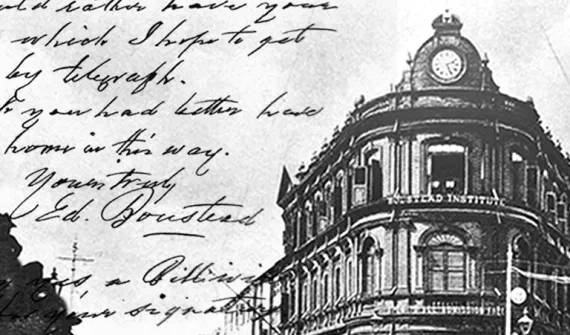 rather have your
which I hope to get
by telegraph.
you had better have
home in this way.
Yours truly
Ed. Boustead
yes, a
for your signature
BOUSTEAD INSTITUTE